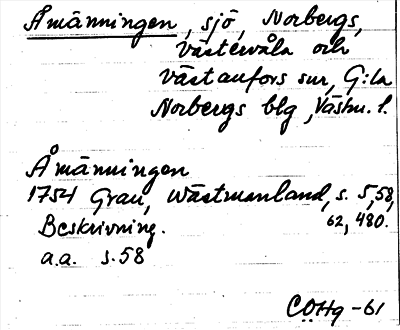 Åmänningen, sjö, Norbergs,
Västervåla och
Västanfors snr, G:la
Norbergs blg, Västm. l.
Åmänningen
1754 Grau, Wästmanland, s. 5,58,
62, 480.
Beskrivning.
a.a. s. 58
CÖHg -61